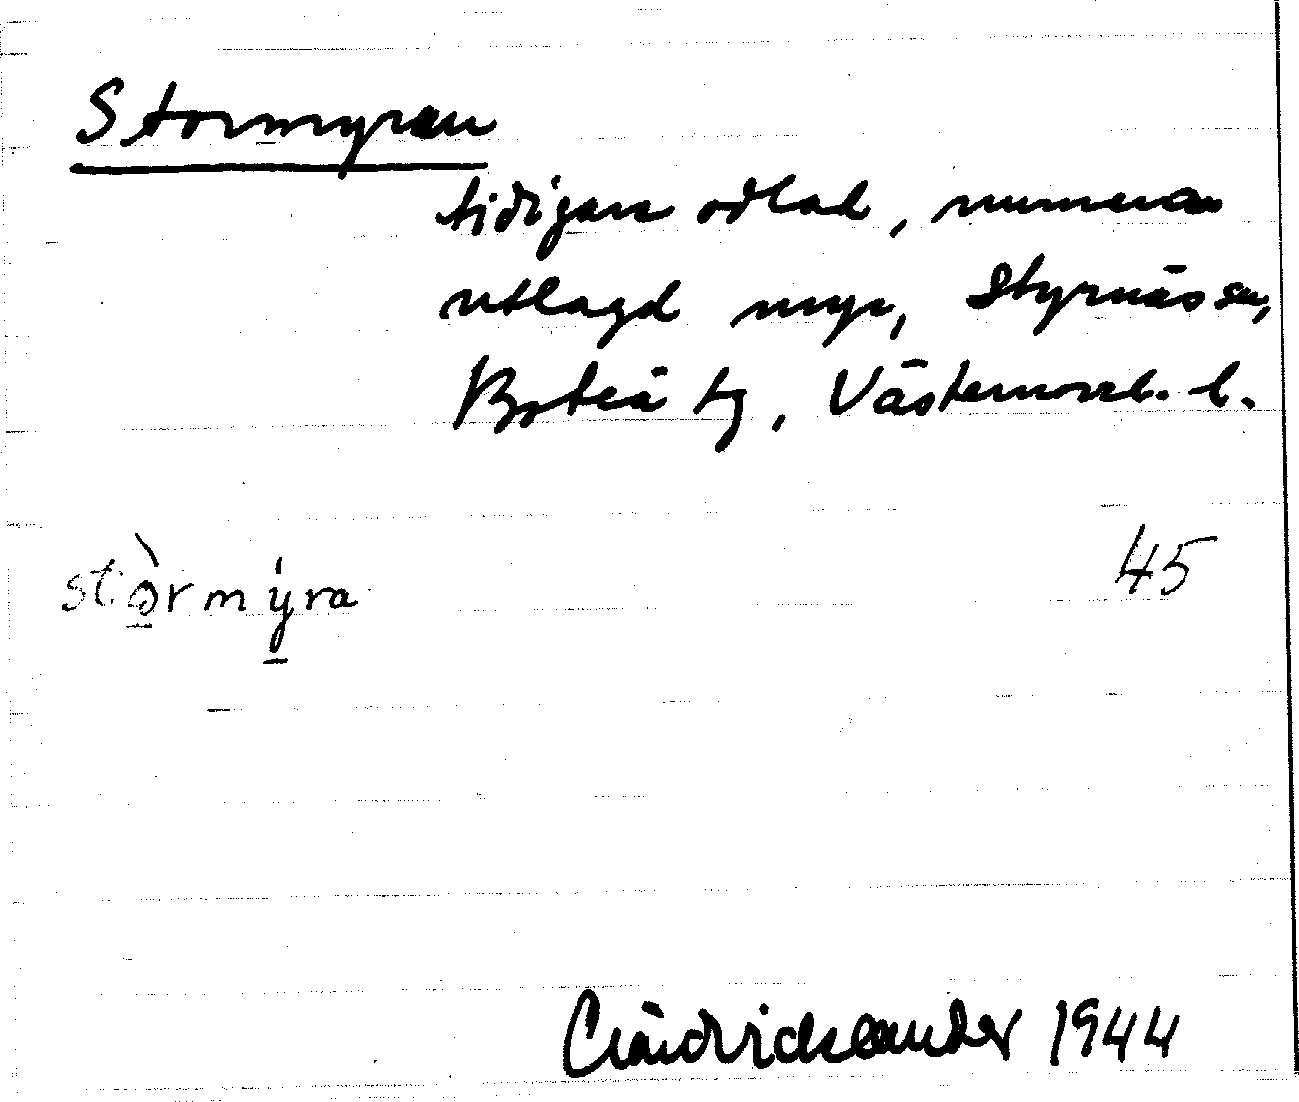 Stormyran
tidigare odlad, numera
utlagd myr, Styrnäs sn,
Boteå tg, Västernorrl. l.
stòrmýra 45
1944